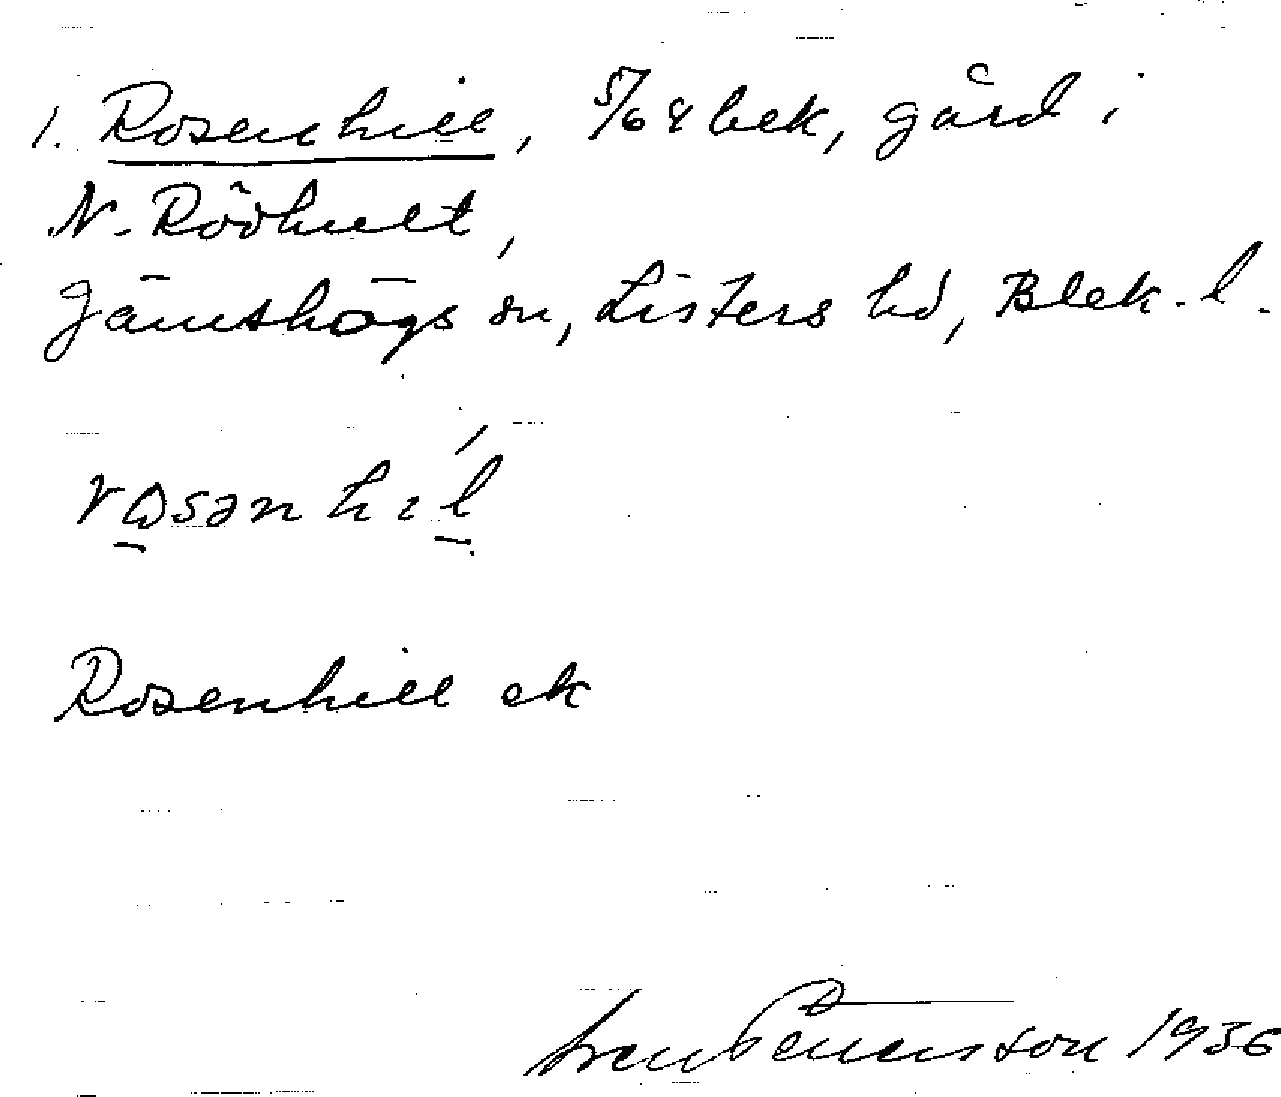 1. Rosenhill, 5/64 bek, gård i
N. Rödhult,
Jämshögs sn, Listers hd, Blek. l.
rosənhil
Rosenhill ek
Sven Benson 1936